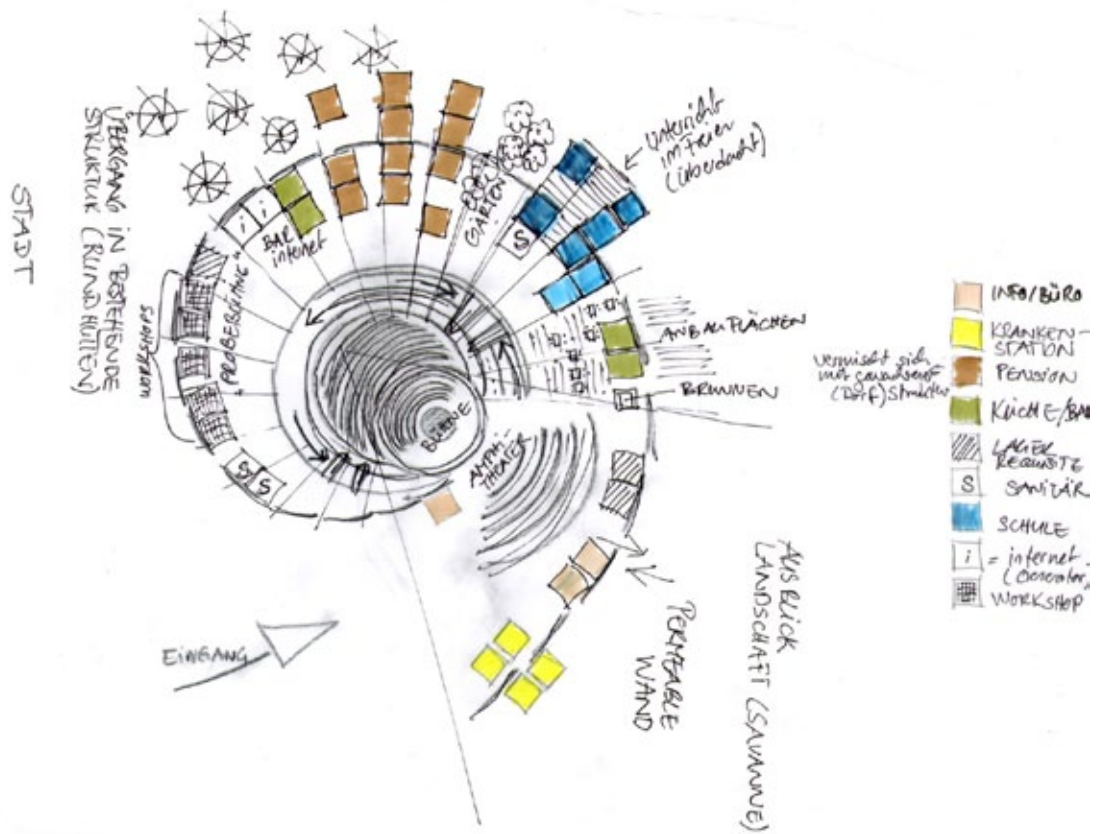 STADT
ÜBERGANG IN BESTEHENDE
STRUKTUR (RUNDHÜTTEN)
WORKSHOPS
"PROBEBÜHNE"
i i
BAR
internet
GÄRTEN
S
Unterricht
im Freien
(überdacht)
ANBAUFLÄCHEN
BRUNNEN
vermischt sich
mit gewachsener
(Dorf) Struktur
BÜHNE
AMPHI-
THEATER
S S
EINGANG
PERMEABLE
WAND
AUSBLICK
LANDSCHAFT (SAVANNE)
INFO/BÜRO
KRANKEN-
STATION
PENSION
KÜCHE/BAR
LAGER
REQUISITE
S SANITÄR
SCHULE
i = internet
WORKSHOP